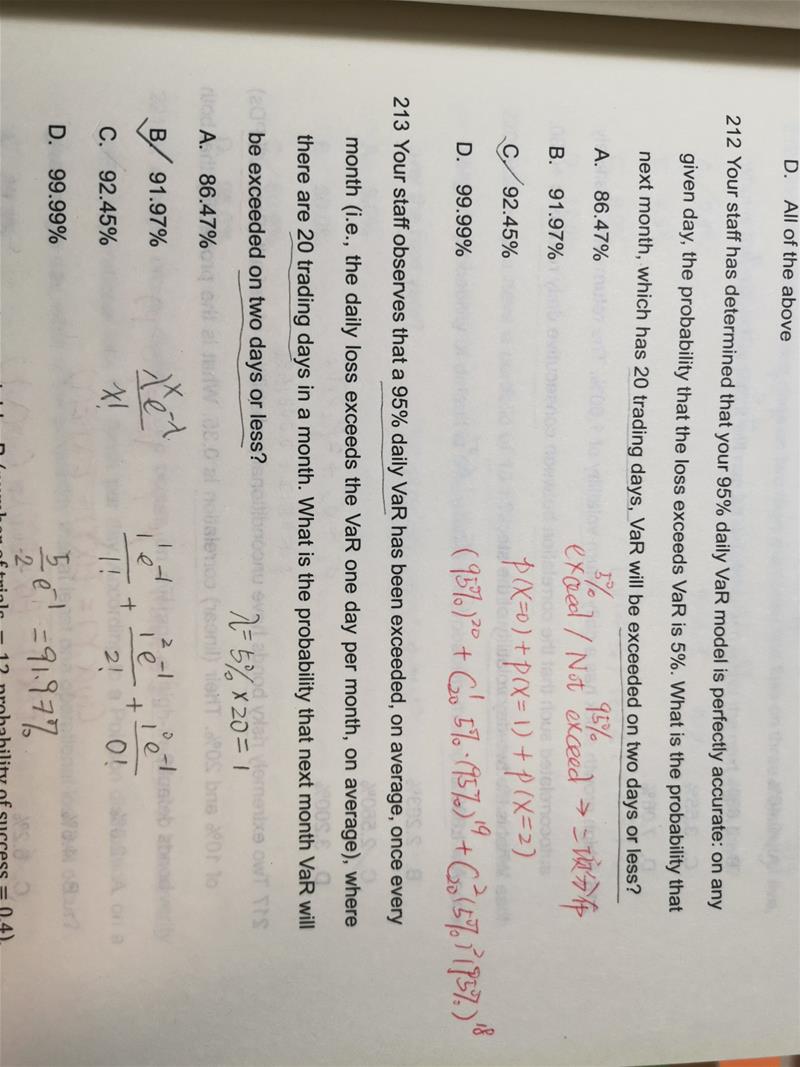 D. All of the above
212 Your staff has determined that your 95% daily VaR model is perfectly accurate: on any
given day, the probability that the loss exceeds VaR is 5%. What is the probability that
next month, which has 20 trading days, VaR will be exceeded on two days or less?
A. 86.47%
5% 95%
exceed / Not exceed → 二项分布
B. 91.97%
P(X=0) + P(X=1) + P(X=2)
C. 92.45%
(95%)^20 + C_20^1 5%·(95%)^19 + C_20^2 (5%)^2 (95%)^18
D. 99.99%
213 Your staff observes that a 95% daily VaR has been exceeded, on average, once every
month (i.e., the daily loss exceeds the VaR one day per month, on average), where
there are 20 trading days in a month. What is the probability that next month VaR will
be exceeded on two days or less?
λ = 5% × 20 = 1
A. 86.47%
B. 91.97%
λ^x e^-λ / x!
1^1 e^-1 / 1! + 1^2 e^-1 / 2! + 1^0 e^-1 / 0!
C. 92.45%
D. 99.99%
5/2 e^-1 = 91.97%
(number of trials = 12, probability of success = 0.4).